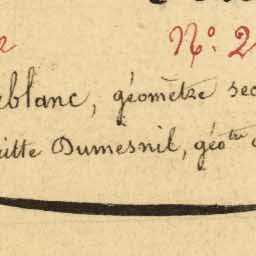 N.º 2
eblanc, géomètre sec
itte Dumesnil, géo.tre